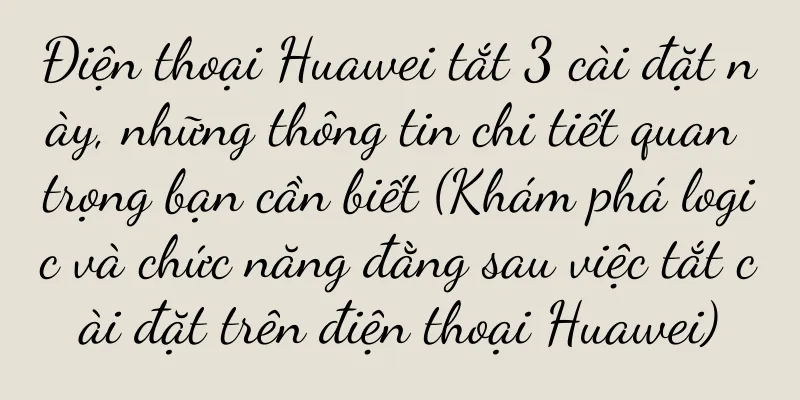 Điện thoại Huawei tắt 3 cài đặt n
ày, những thông tin chi tiết quan
trọng bạn cần biết (Khám phá logi
c và chức năng đằng sau việc tắt c
ài đặt trên điện thoại Huawei)